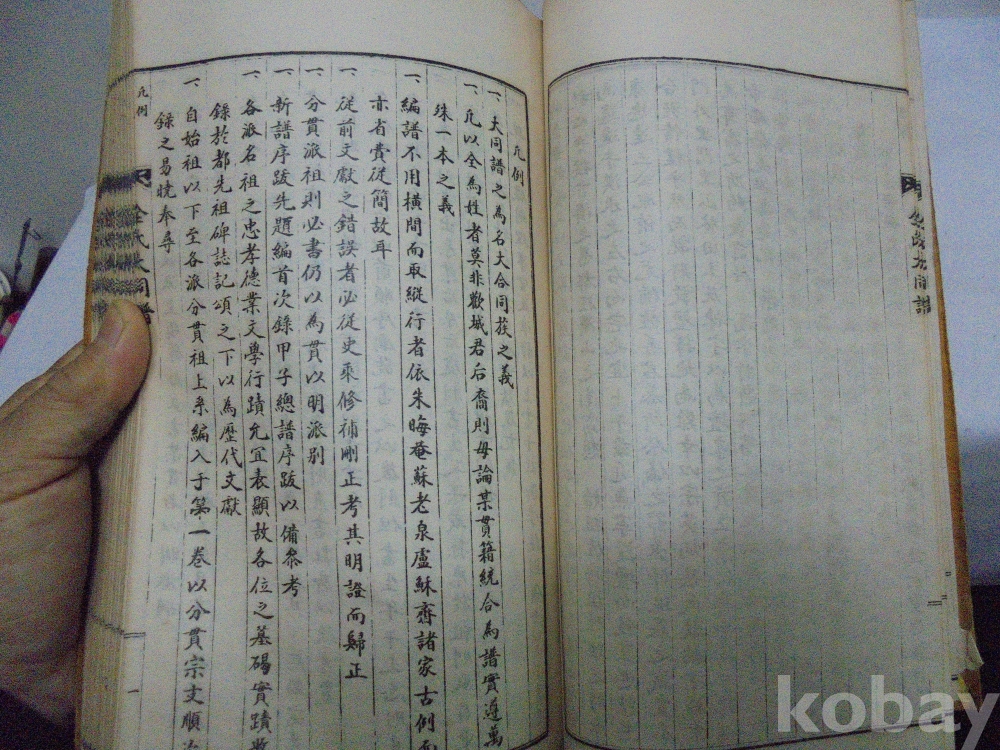 凡例
一、大同譜之為名大合同族之義
一、凡以全為姓者莫非歡城君后裔則毋論某貫籍統合為譜實遵萬
殊一本之義
一、編譜不用橫間而取縱行者依朱晦菴蘇老泉盧蘇齋諸家古例而
亦省費從簡故耳
一、從前文獻之錯誤者必從史乘修補刪正考其明證而歸正
一、分貫派祖則必書仍以為貫以明派別
一、新譜序跋先題編首次錄甲子總譜序跋以備參考
一、各派名祖之忠孝德業文學行蹟允宜表顯故各位之墓碣實蹟
錄於都先祖碑誌記頌之下以為歷代文獻
一、自始祖以下至各派分貫祖上系編入于第一卷以分貫宗支順
錄之易曉奉尋
凡例
全氏大同譜
一
大同譜
kobay